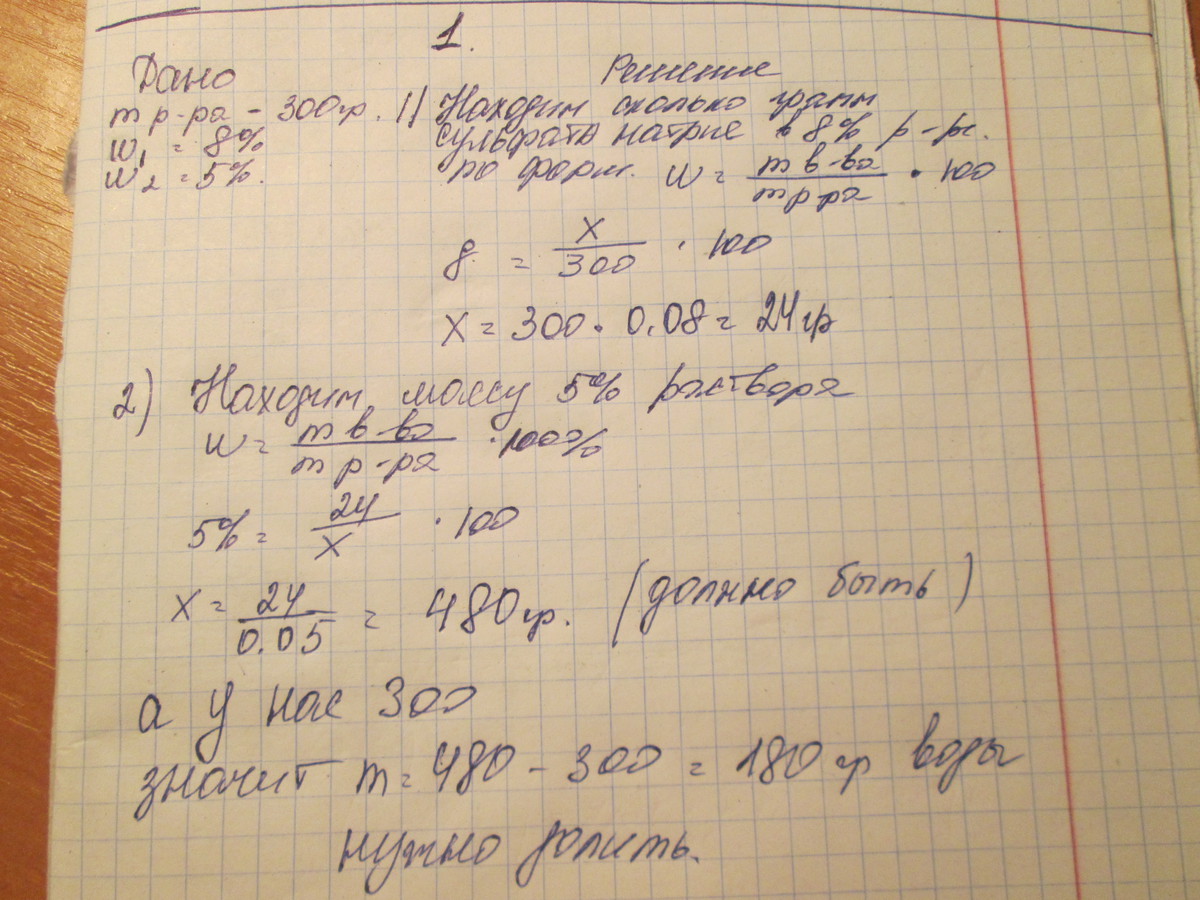 1.
Дано
m р-ра - 300гр.
w₁ = 8%
w₂ = 5%.
Решение
1) Находим сколько грамм
сульфата натрие в 8% р-ры.
по форм. w = m в-ва / m р-ра · 100
8 = x / 300 · 100
x = 300 · 0.08 = 24 гр
2) Находим массу 5% раствора
w = m в-ва / m р-ра · 100%
5% = 24 / x · 100
x = 24 / 0.05 = 480 гр. (должно быть)
а у нас 300
значит m = 480 - 300 = 180 гр воды
нужно долить.